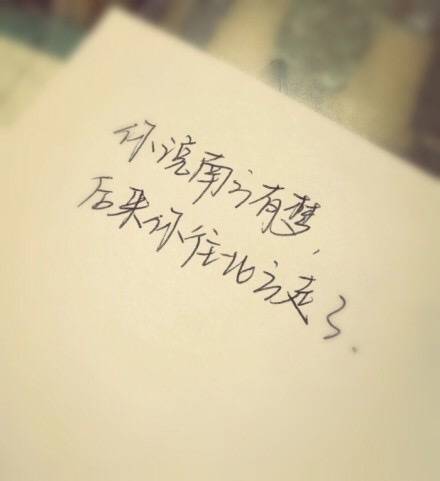 你说南方有梦,
后来你往北方走了.